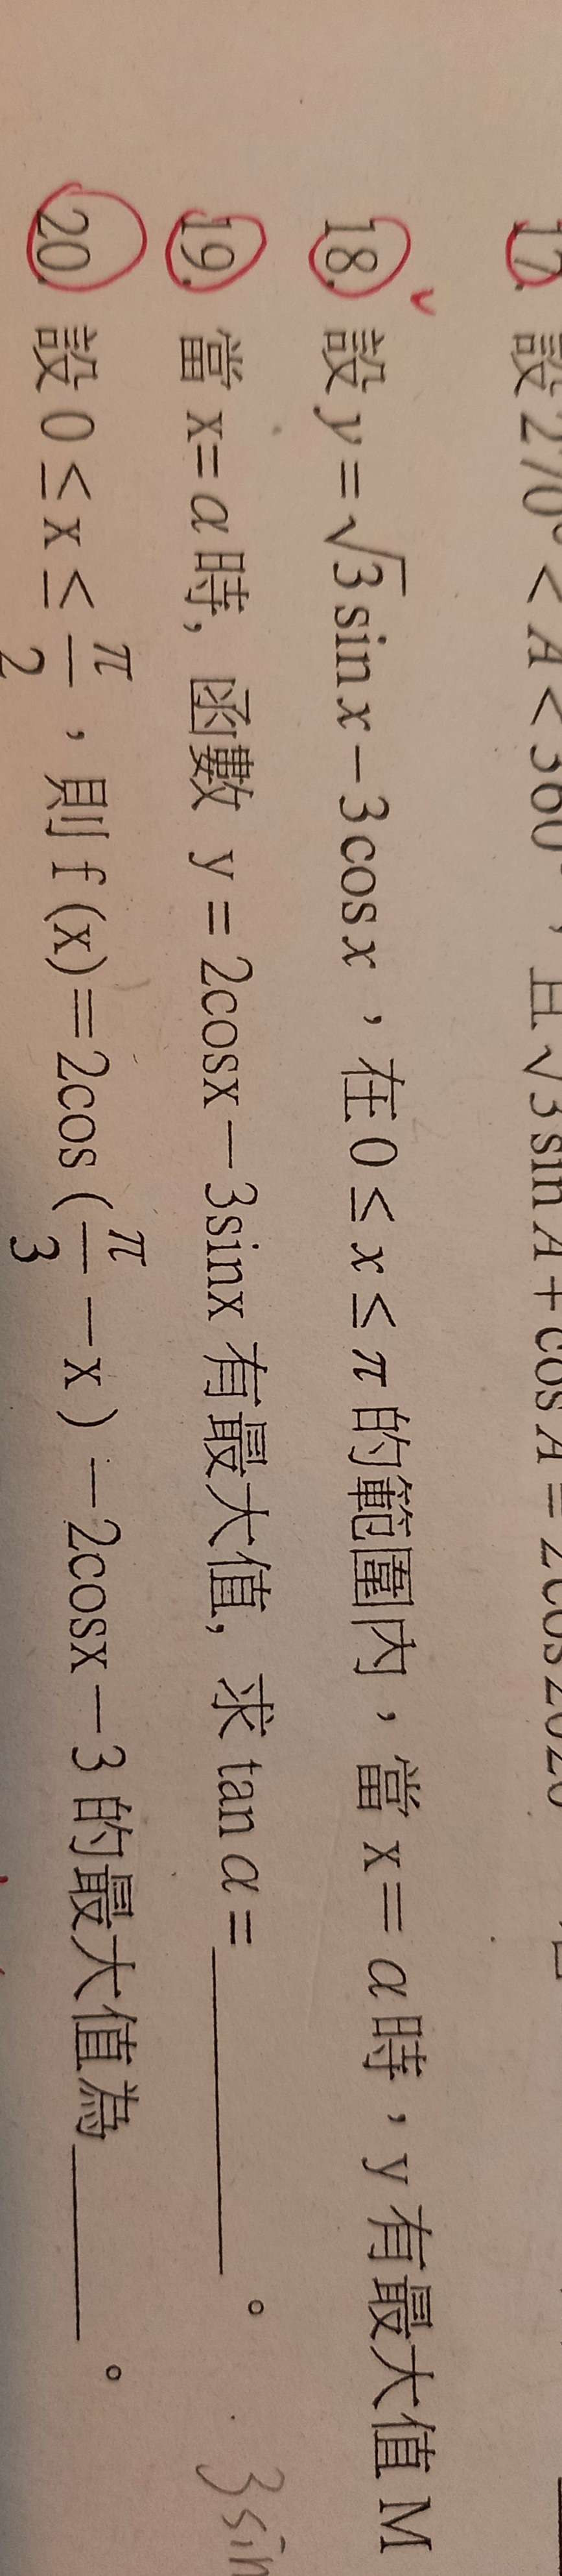 17. 設 270° < A < 360°，且 √3 sin A + cos A = 2cos2020
18. 設 y = √3 sin x − 3cos x，在 0 ≤ x ≤ π 的範圍內，當 x = α 時，y 有最大值 M
19. 當 x = α 時, 函數 y = 2cosx − 3sinx 有最大值, 求 tan α = ______。
3 sin
20. 設 0 ≤ x ≤ π/2，則 f (x) = 2cos (π/3 − x) − 2cosx − 3 的最大值為______。